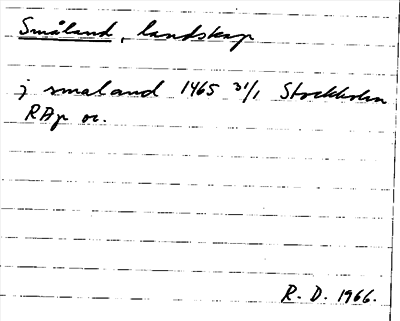 Småland, landskap
j smaland 1465 31/1 Stockholm
RAp or.
R. D. 1966.